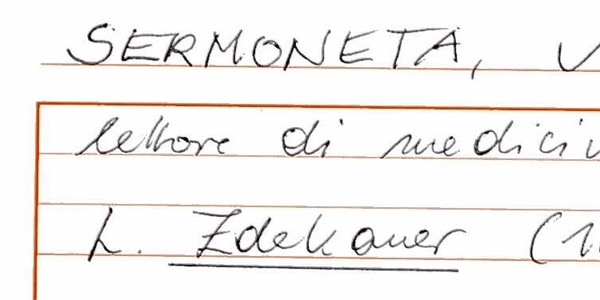 SERMONETA, V
lettore di medicin
L. Zdekauer (1